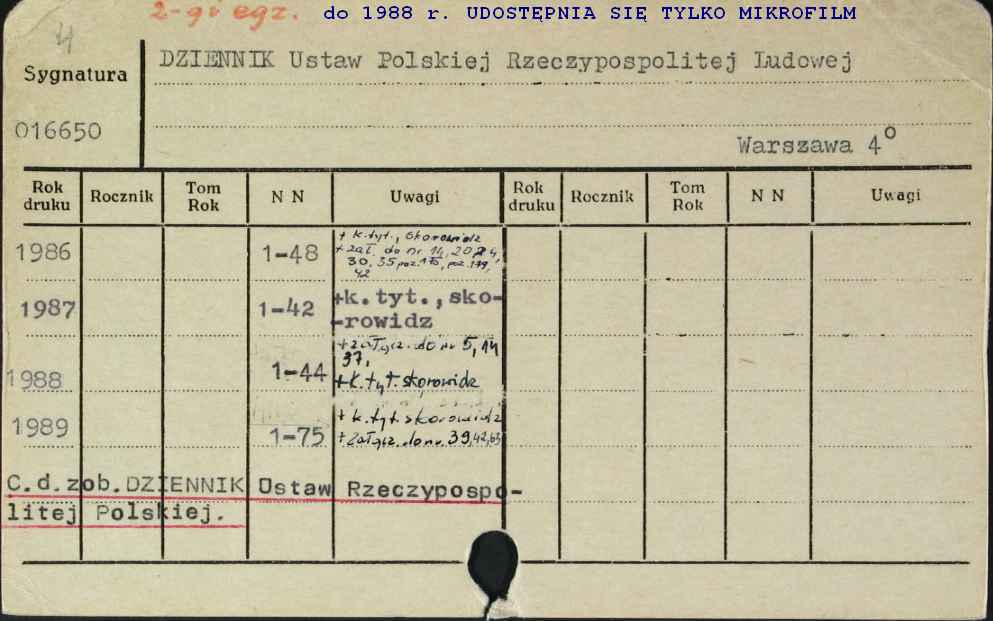 2-gi egz. do 1988 r. UDOSTĘPNIA SIĘ TYLKO MIKROFILM
4
Sygnatura
DZIENNIK Ustaw Polskiej Rzeczypospolitej Ludowej
016650
Warszawa 4°
Rok druku Rocznik Tom Rok N N Uwagi Rok druku Rocznik Tom Rok N N Uwagi
1986 1-48 + k.tyt., skorowidz
+ zał. do nr 14, 20,
30, 35 poz. 175, poz. 179,
42
1987 1-42 +k.tyt.,sko-
-rowidz
+załącz. do nr 5, 14
37,
1988 1-44 +k.tyt. skorowidz
1989 + k.tyt. skorowidz
1-75 +załącz. do nr. 39,42,63
C.d.zob.DZIENNIK Ustaw Rzeczypospo-
litej Polskiej.